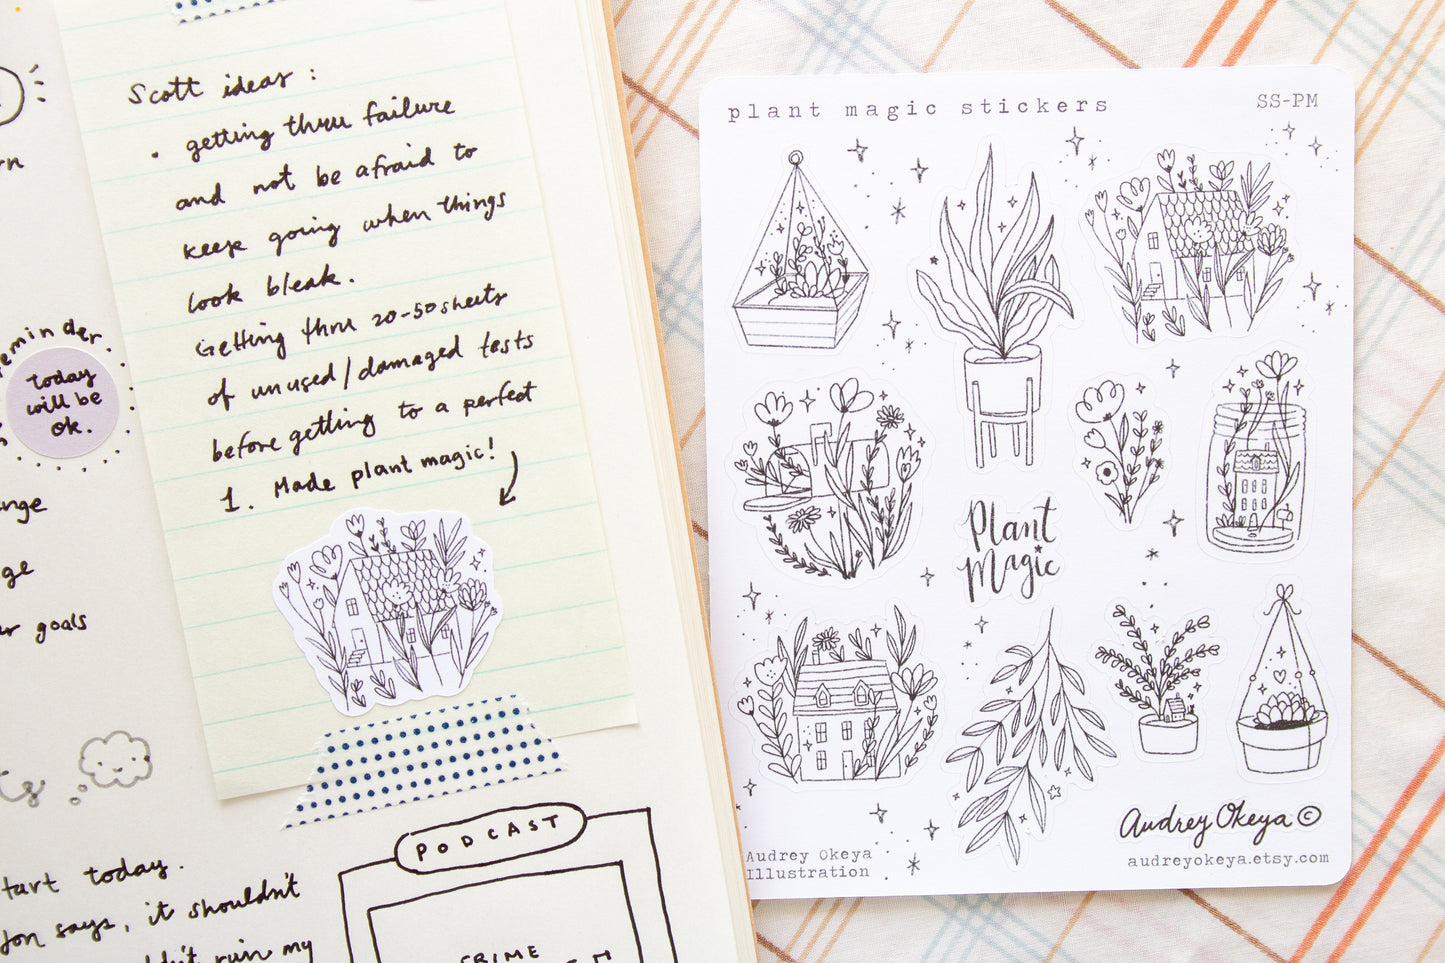 Scott ideas :
• getting thru failure
and not be afraid to
keep going when things
look bleak.
Getting thru 20-50 sheets
of unused/damaged tests
before getting to a perfect
1. Made plant magic!
reminder
today
will be
ok.
goals
start today.
says, it shouldn't
ruin my
PODCAST
CRIME
plant magic stickers
SS-PM
Plant
Magic
Audrey Okeya ©
audreyokeya.etsy.com
Audrey Okeya
Illustration